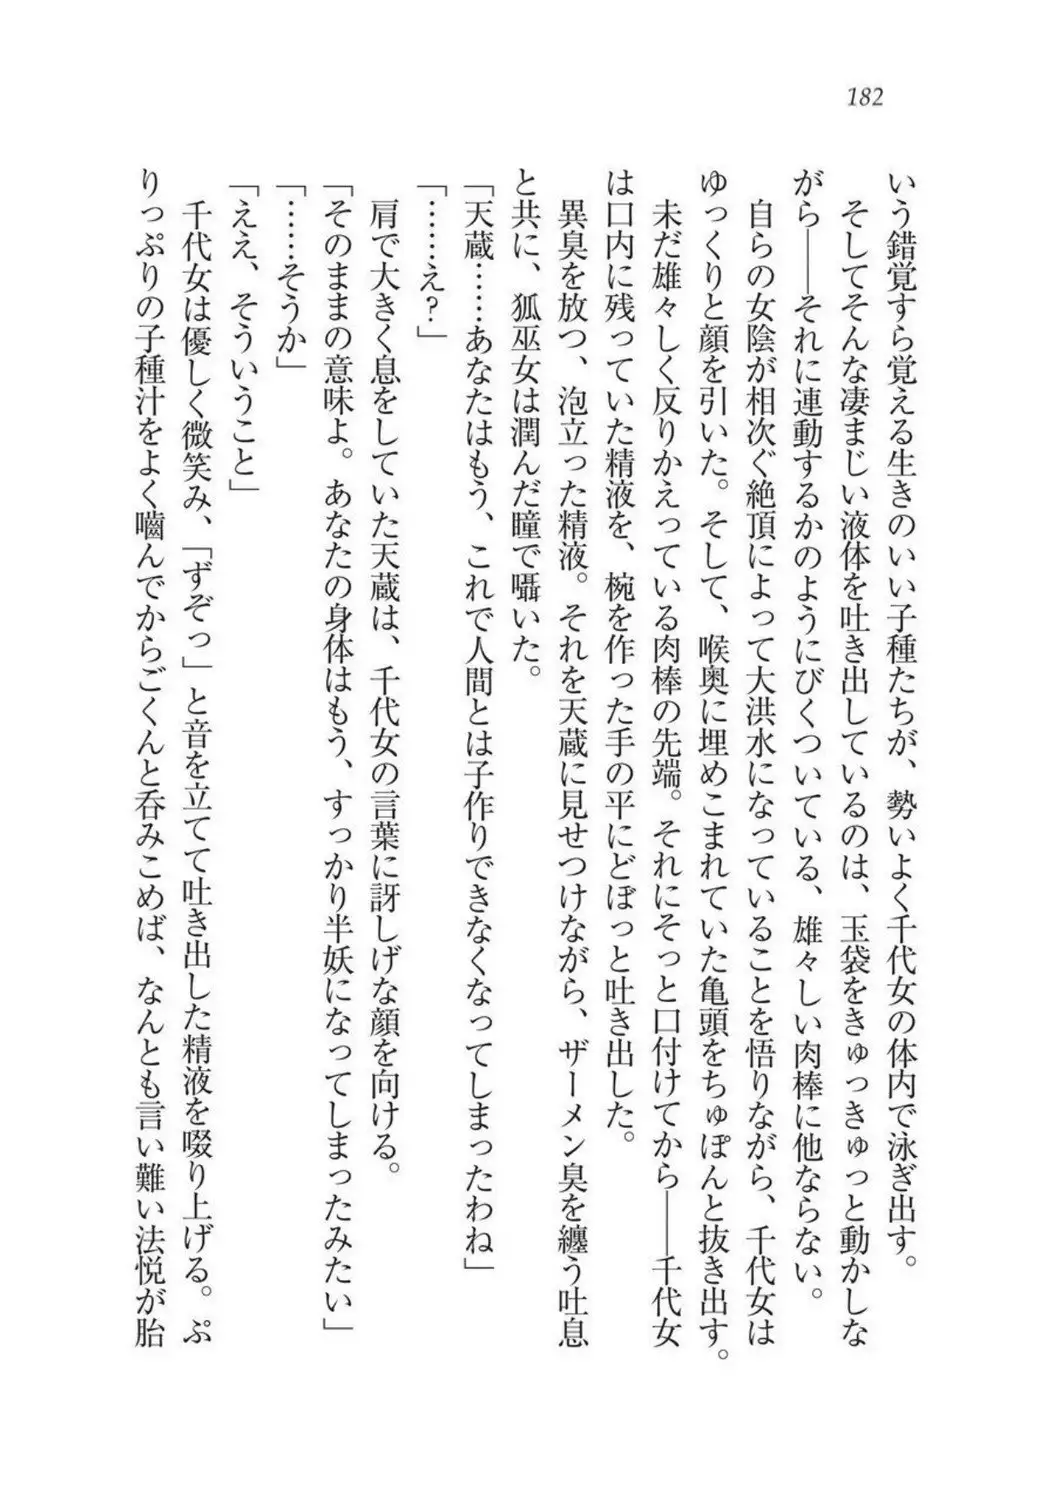 182
いう錯覚すら覚える生きのいい子種たちが、勢いよく千代女の体内で泳ぎ出す。
そしてそんな凄まじい液体を吐き出しているのは、玉袋をきゅっきゅっと動かしな
がら――それに連動するかのようにびくついている、雄々しい肉棒に他ならない。
自らの女陰が相次ぐ絶頂によって大洪水になっていることを悟りながら、千代女は
ゆっくりと顔を引いた。そして、喉奥に埋めこまれていた亀頭をちゅぽんと抜き出す。
未だ雄々しく反りかえっている肉棒の先端。それにそっと口付けてから――千代女
は口内に残っていた精液を、椀を作った手の平にどぼっと吐き出した。
異臭を放つ、泡立った精液。それを天蔵に見せつけながら、ザーメン臭を纏う吐息
と共に、狐巫女は潤んだ瞳で囁いた。
「天蔵……あなたはもう、これで人間とは子作りできなくなってしまったわね」
「……え？」
肩で大きく息をしていた天蔵は、千代女の言葉に訝しげな顔を向ける。
「そのままの意味よ。あなたの身体はもう、すっかり半妖になってしまったみたい」
「……そうか」
「ええ、そういうこと」
千代女は優しく微笑み、「ずぞっ」と音を立てて吐き出した精液を啜り上げる。ぷ
りっぷりの子種汁をよく嚙んでからごくんと呑みこめば、なんとも言い難い法悦が胎